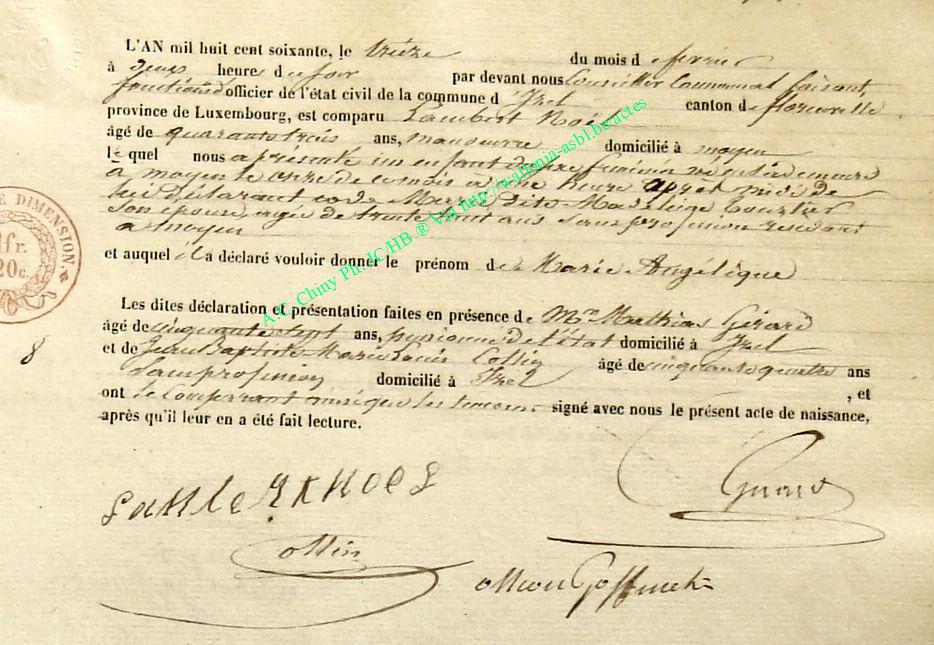 L'AN mil huit cent soixante, le treize du mois de février
à deux heures du soir par devant nous Conseiller Communal faisant
fonctions officier de l'état civil de la commune d'Izel canton de florenville
province de Luxembourg, est comparu Lambert Noël
âgé de quarante trois ans, manoeuvre domicilié à moyen
lequel nous a présenté un enfant de sexe féminin né
à moyen le onze de ce mois à une heure après midi de
lui Déclarant et de Marie Madeleine
Son épouse, agée de trente huit ans sans profession residant
à moyen
et auquel il a déclaré vouloir donner le prénom de Marie Angélique
Les dites déclaration et présentation faites en présence de Mr Mathias Gérard
âgé de cinquante sept ans, pensionné de l'état domicilié à Izel
et de Jean Baptiste Marie Louis Collin âgé de cinquante quatre ans
Sans profession domicilié à Izel , et
ont le Comparant ainsi que les temoins signé avec nous le présent acte de naissance,
après qu'il leur en a été fait lecture.
8
DIMENSION
fr.
20c.
A.C. Chiny Ph. JC/HB ® Via http://wallonia-asbl.be/actes
Gérard
Collin
Goffinet